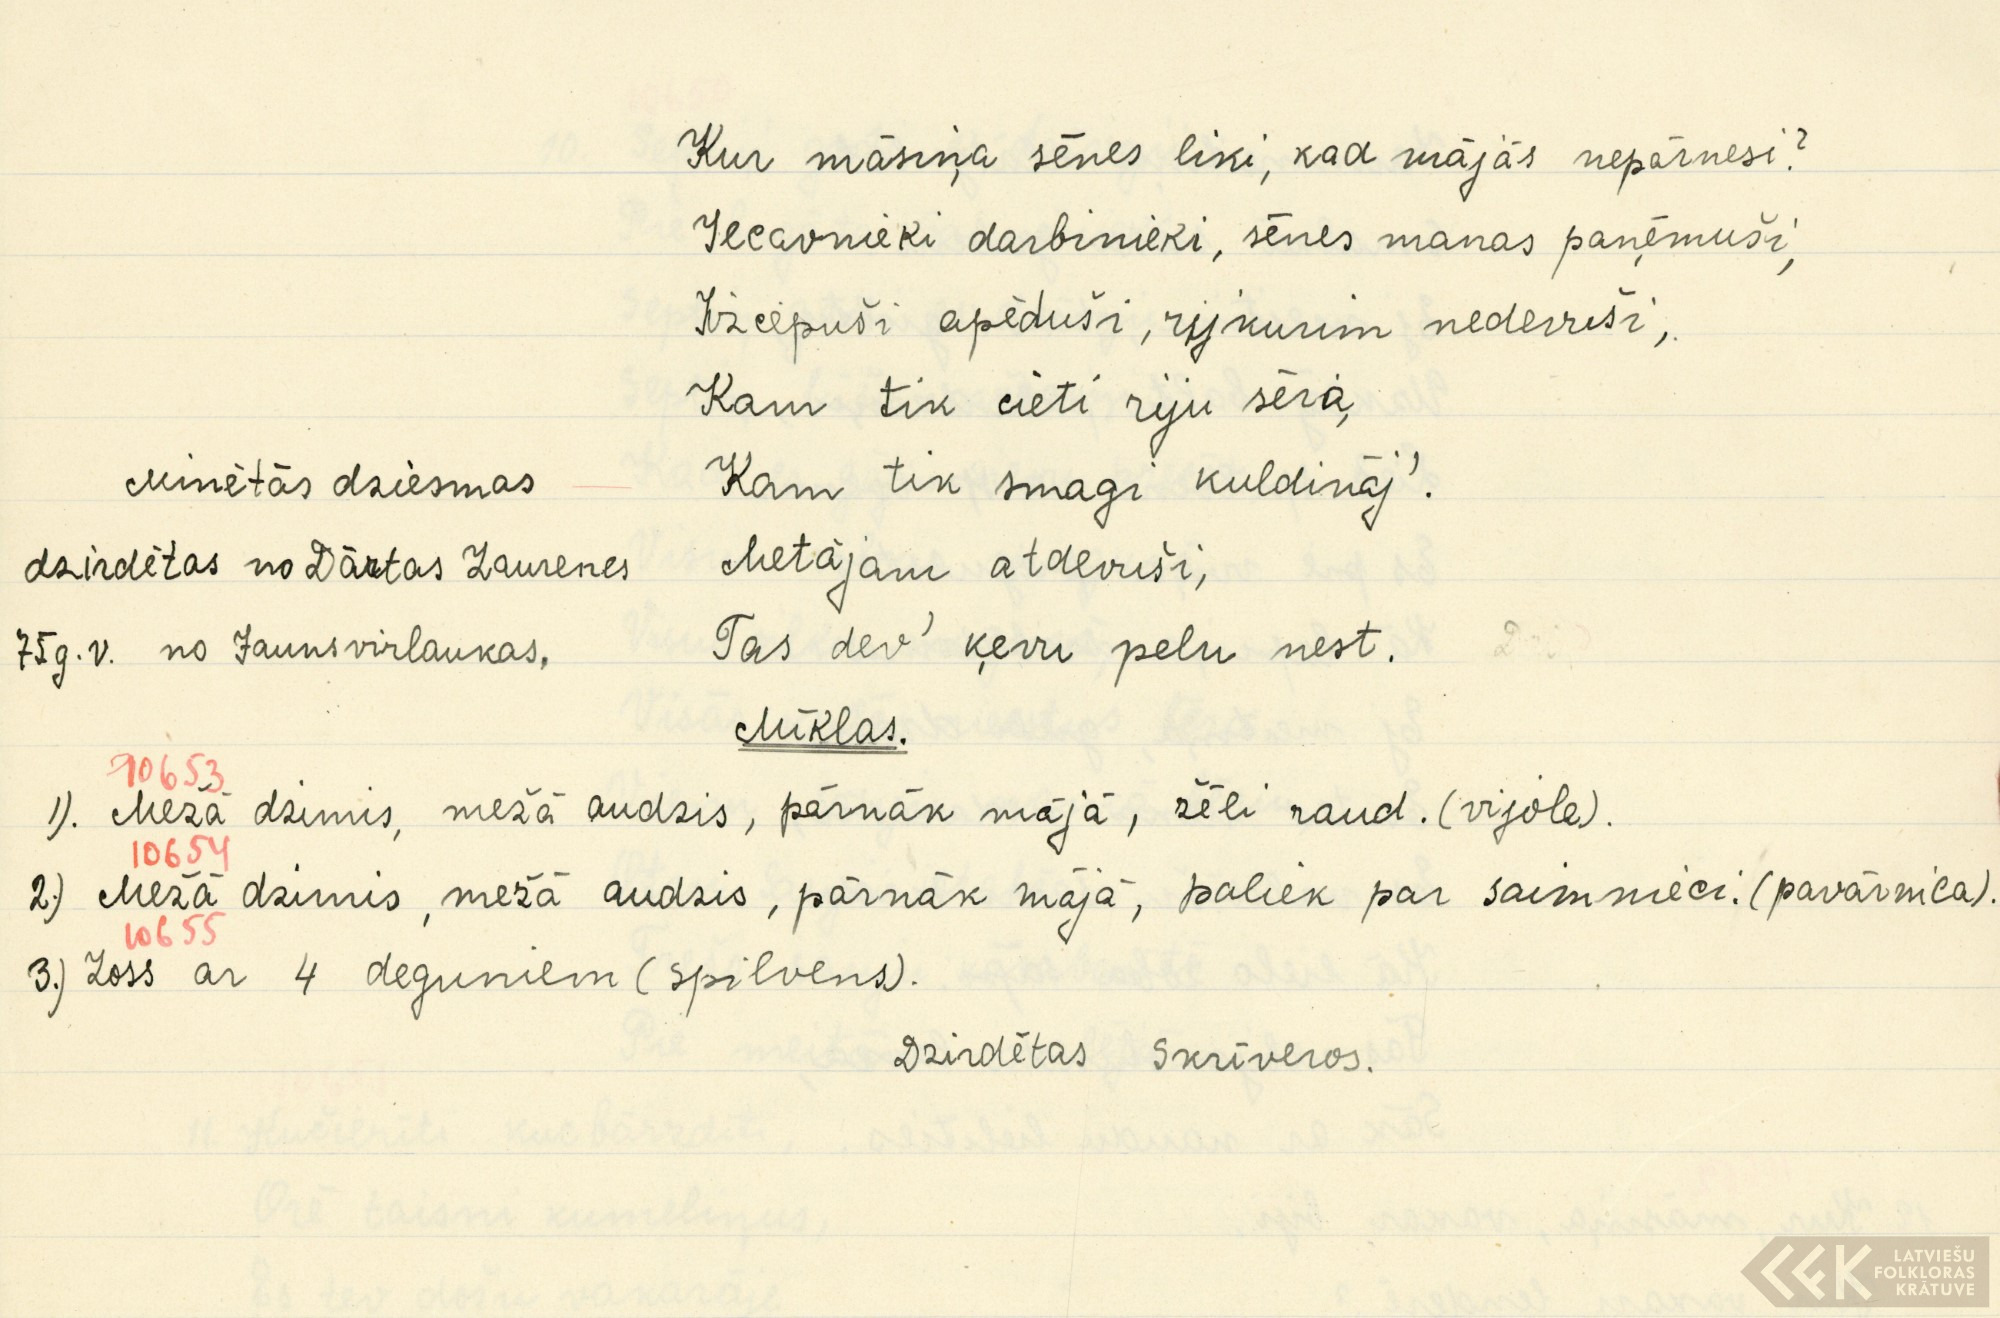 Kur māsiņa sēnes liki, kad mājās nepārnesi?
Iecavnieki darbinieki, sēnes manas paņēmuši,
Izcēpuši apēduši, rijkurim nedevuši,
Kam tik cieti riju sēra,
Kam tik smagi kuldināj'.
Metājam atdevuši,
Tas dev' ķevu pelu nest.
Minētās dziesmas
dzirdētas no Dārtas Laurenes
75 g. v. no Jaunsvirlaukas.
Mīklas.
10653
1). Mežā dzimis, mežā audzis, pārnāk mājā, žēli raud. (vijole).
10654
2.) Mežā dzimis, mežā audzis, pārnāk mājā, paliek par saimnieci. (pavārnīca).
10655
3.) Loss ar 4 deguniem (spilvens).
Dzirdētas Skrīveros.
LATVIEŠU
FOLKLORAS
KRĀTUVE